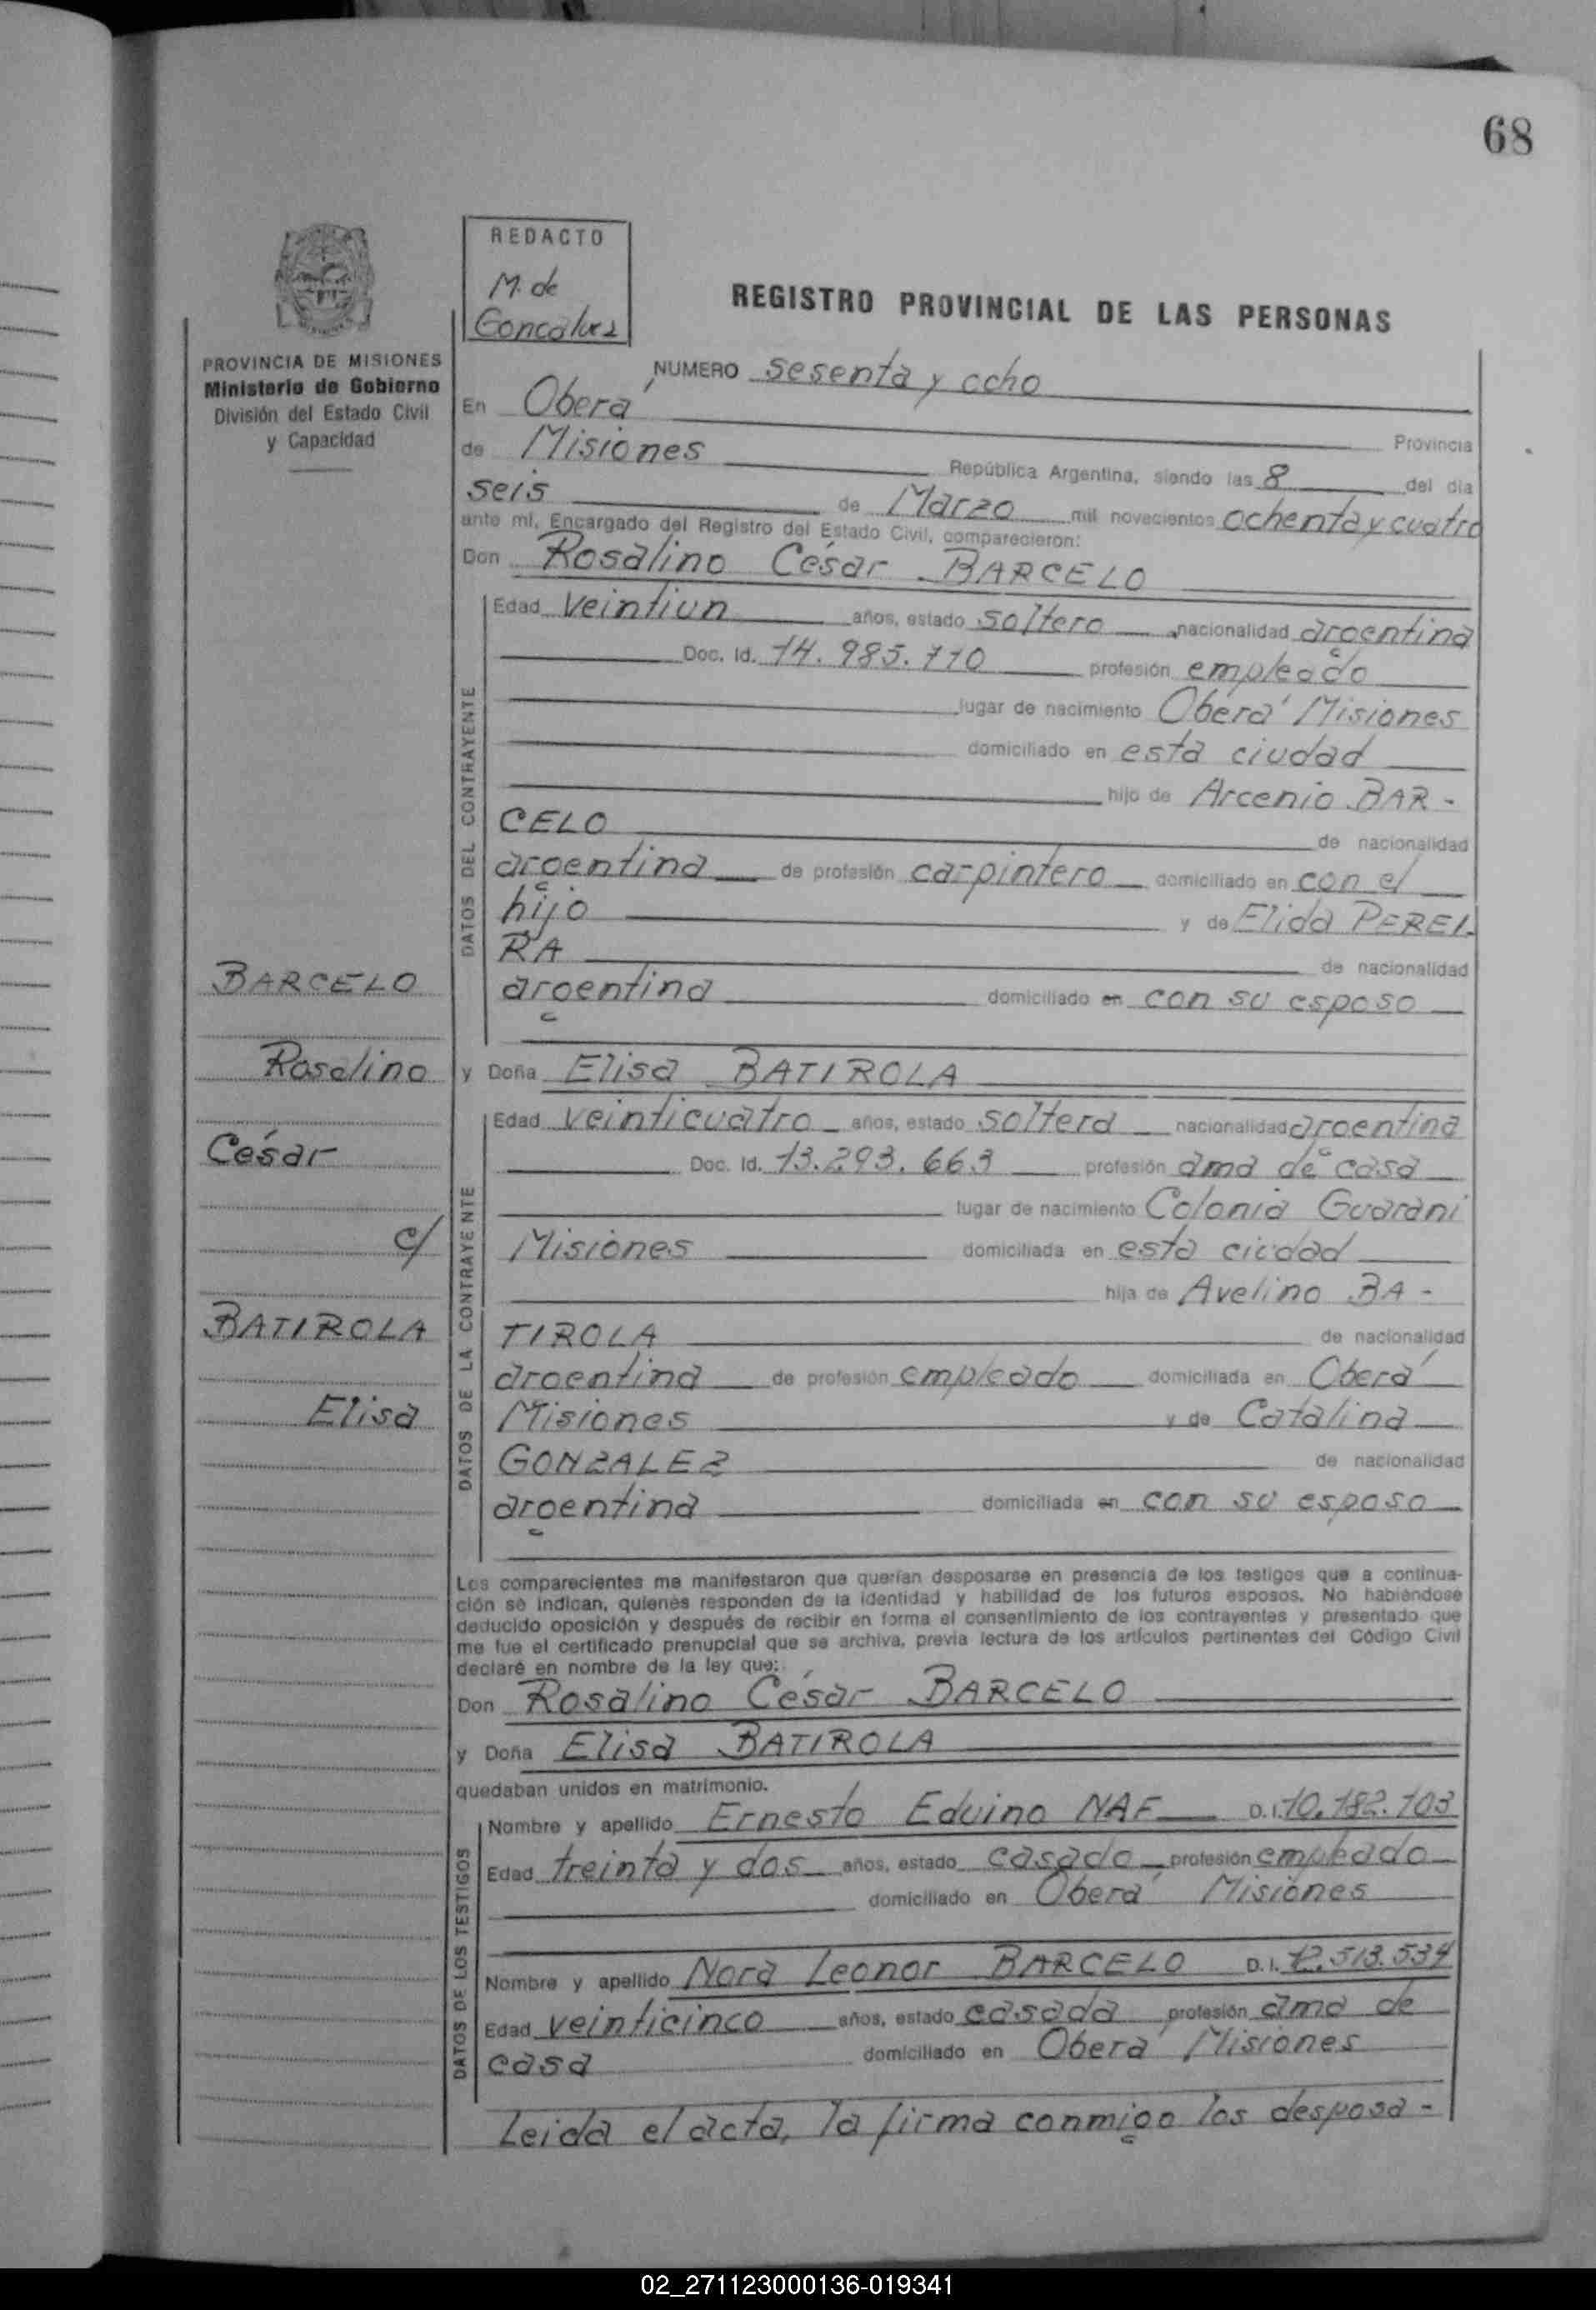 68
REDACTO
M. de
Goncalves
REGISTRO PROVINCIAL DE LAS PERSONAS
PROVINCIA DE MISIONES
Ministerio de Gobierno
División del Estado Civil
y Capacidad
NUMERO sesenta y ocho
En Oberá Provincia
de Misiones República Argentina, siendo las 8 del día
seis de Marzo mil novecientos ochenta y cuatro
ante mí, Encargado del Registro del Estado Civil, comparecieron:
Don Rosalino César BARCELO
DATOS DEL CONTRAYENTE
Edad veintiun años, estado soltero nacionalidad argentina
Doc. Id. 14.985.110 profesión empleado
lugar de nacimiento Oberá Misiones
domiciliado en esta ciudad
hijo de Arcenio BAR-
CELO de nacionalidad
argentina de profesión carpintero domiciliado en con el
hijo y de Elida PEREI-
RA de nacionalidad
argentina domiciliado en con su esposo
BARCELO
Rosalino
César
c/
BATIROLA
Elisa
y Doña Elisa BATIROLA
DATOS DE LA CONTRAYENTE
Edad veinticuatro años, estado soltera nacionalidad argentina
Doc. Id. 13.293.663 profesión ama de casa
lugar de nacimiento Colonia Guaraní
Misiones domiciliada en esta ciudad
hija de Avelino BA-
TIROLA de nacionalidad
argentina de profesión empleado domiciliada en Oberá
Misiones y de Catalina
GONZALEZ de nacionalidad
argentina domiciliada en con su esposo
Los comparecientes me manifestaron que querían desposarse en presencia de los testigos que a continua-
ción se indican, quienes responden de la identidad y habilidad de los futuros esposos. No habiéndose
deducido oposición y después de recibir en forma el consentimiento de los contrayentes y presentado que
me fue el certificado prenupcial que se archiva, previa lectura de los artículos pertinentes del Código Civil
declaré en nombre de la ley que:
Don Rosalino César BARCELO
y Doña Elisa BATIROLA
quedaban unidos en matrimonio.
DATOS DE LOS TESTIGOS
Nombre y apellido Ernesto Eduino NAF D.I. 10.182.103
Edad treinta y dos años, estado casado profesión empleado
domiciliado en Oberá Misiones
Nombre y apellido Nora Leonor BARCELO D.I. 12.513.534
Edad veinticinco años, estado casada profesión ama de
casa domiciliado en Oberá Misiones
Leida el acta, la firma conmigo los desposa-
02_271123000136-019341